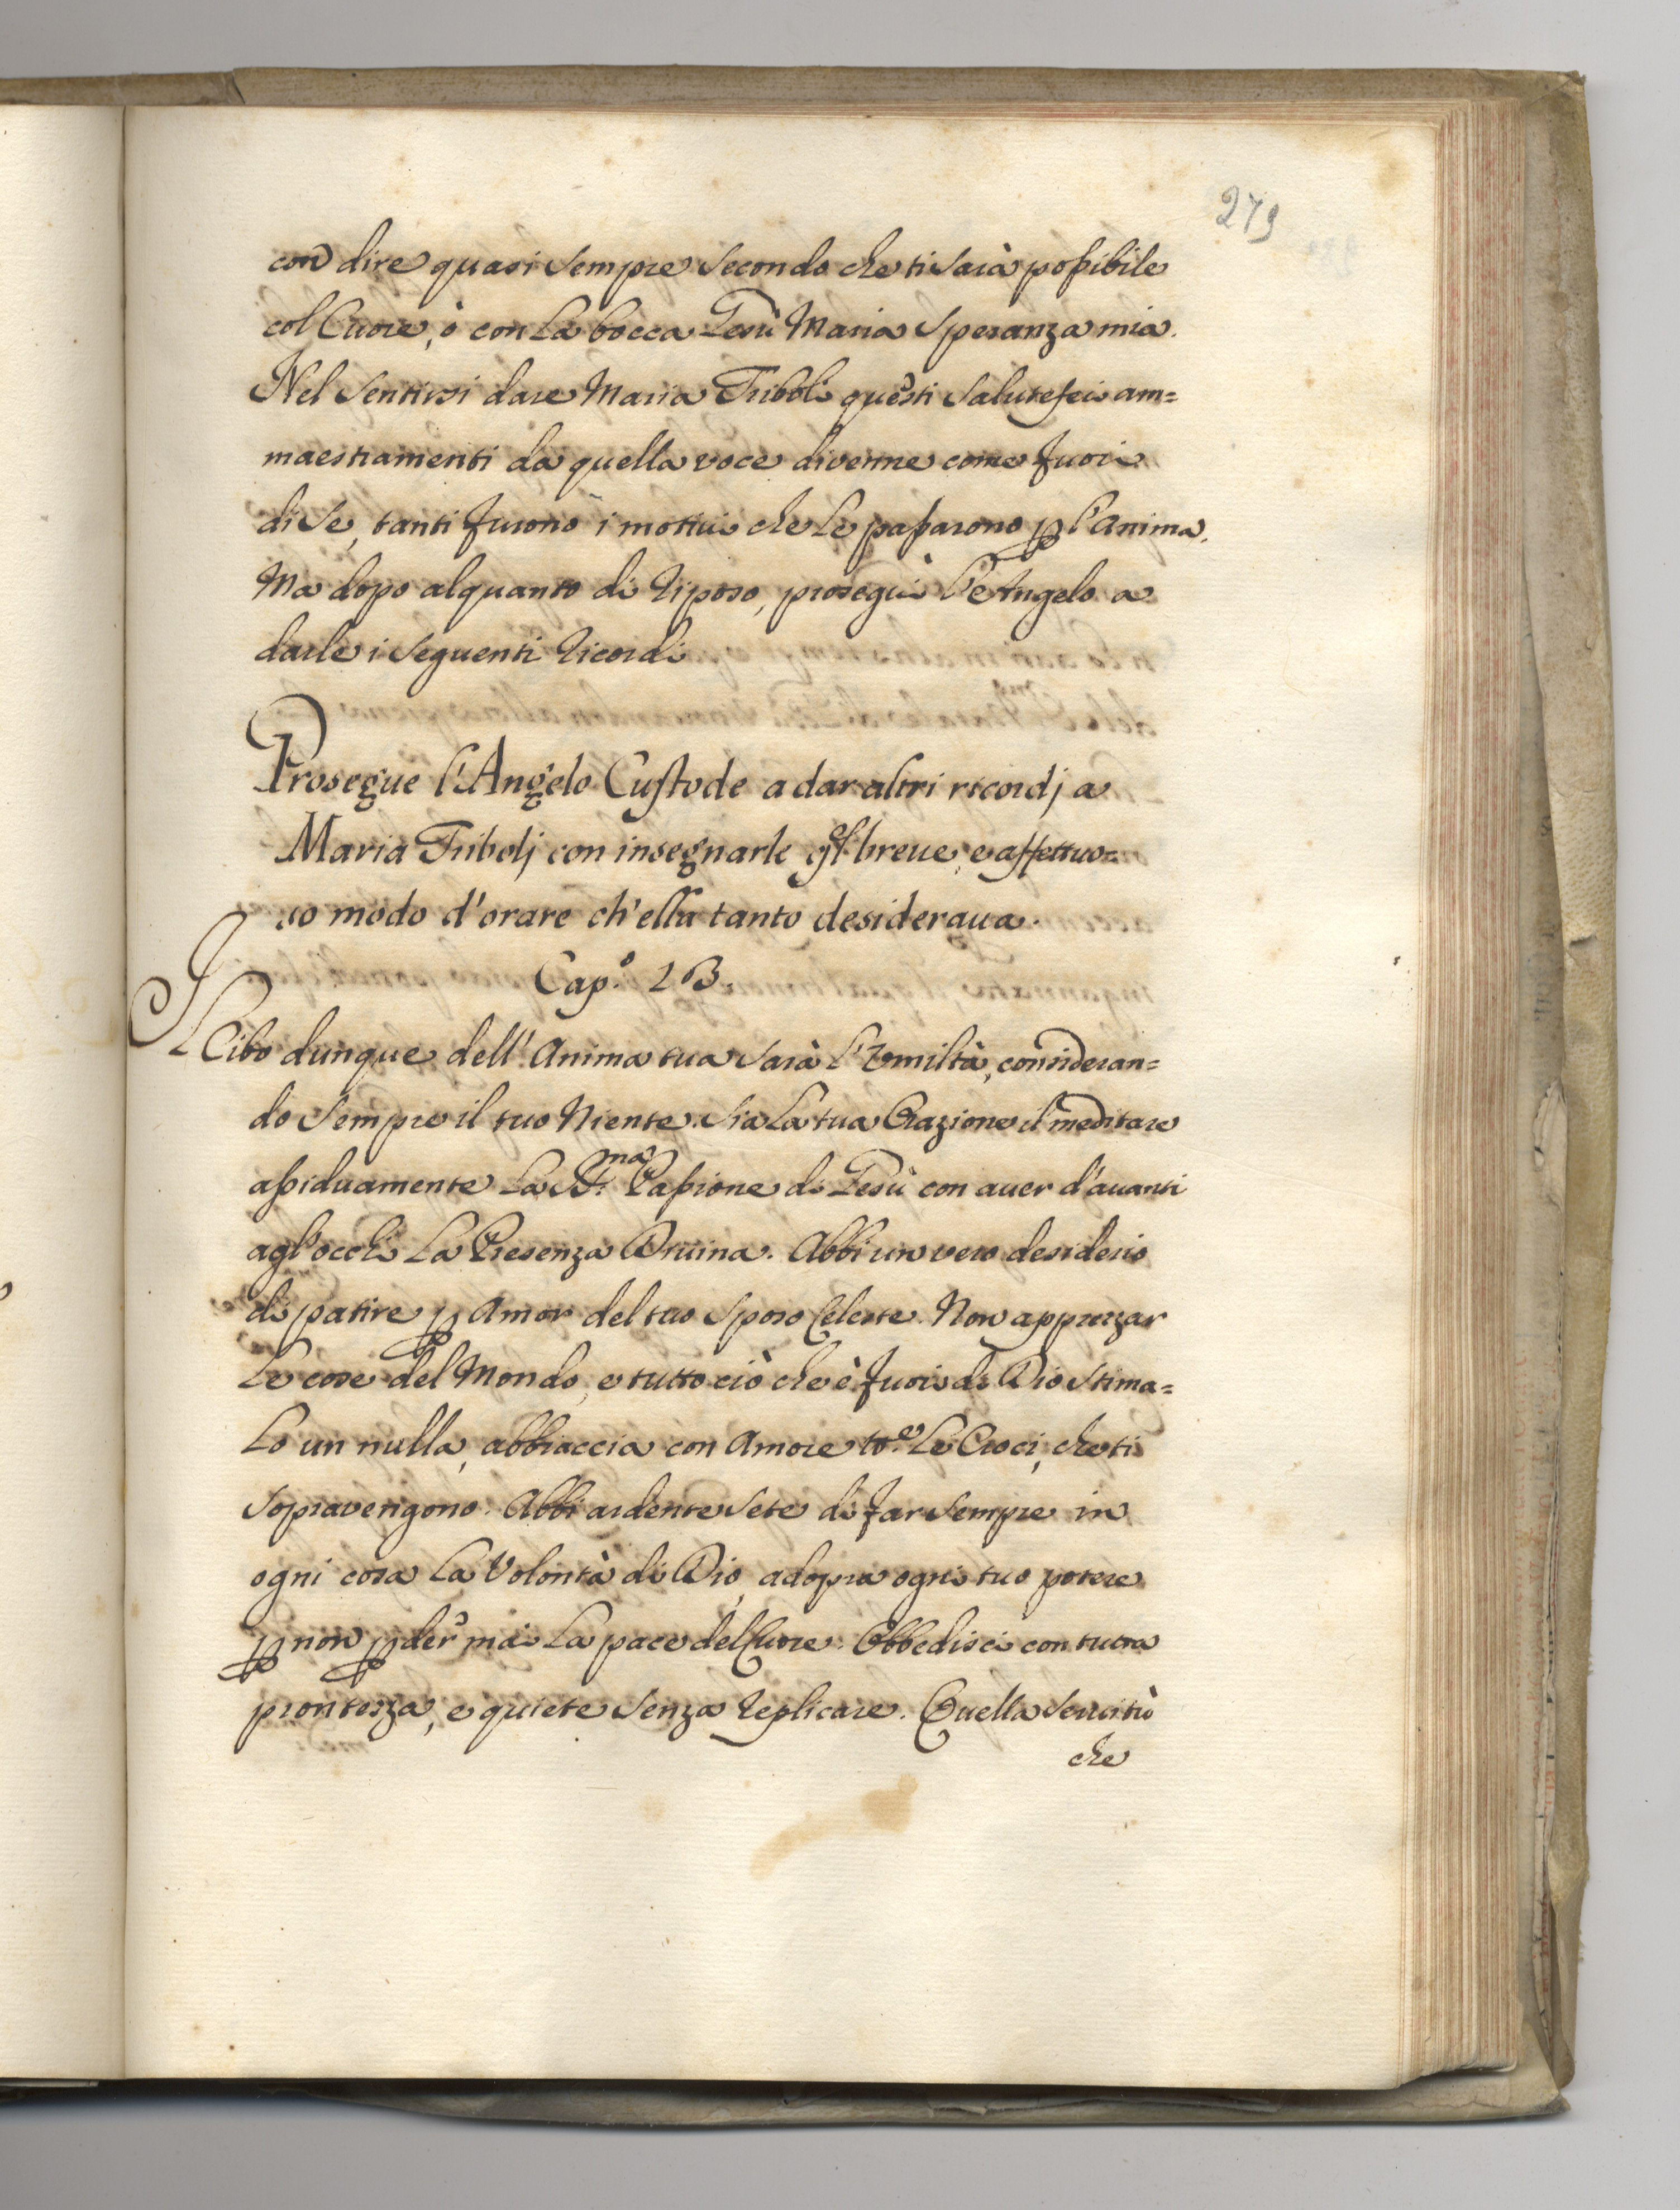 279
con dire quasi sempre secondo che ti sarà possibile
col Cuore, ò con la bocca Gesù Maria Speranza mia.
Nel sentirsi dare Maria Triboli questi saluteferi am=
maestramenti da quella voce divenne come fuori
di se, tanti furono i motiui che le passarono p l'Anima.
Ma dopo alquanto di riposo, proseguì l'Angelo a
darle i seguenti ricordi
Prosegue l'Angelo Custode a dar altri ricordj a
Maria Tribolj con insegnarle ql breue, e affettuo=
so modo d'orare ch'ella tanto desideraua.
Cap.º 163.
Il Cibo dunque dell'Anima tua sarà l'Vmiltà, consideran=
do sempre il tuo Niente. Sia la tua Orazione il meditare
assiduamente la SS.ma Passione di Gesù con auer d'auanti
agl'occhi la Presenza Diuina. Abbi un vero desiderio
di patire p Amor del tuo Sposo Celeste. Non apprezzar
le cose del Mondo, e tutto ciò che è fuori di Dio stima=
lo un nulla, abbraccia con Amore tt.e le Croci, che ti
sopravengono. Abbi ardente sete di far sempre in
ogni cosa la Volontà di Dio, adopra ogni tuo potere
p non pder mai la pace del Cuore. Obbedisci con tutta
prontezza, e quiete senza replicare. Quella seruitù
che